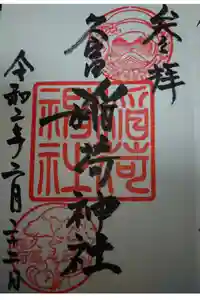 参拝
稲荷神社
令和二年二月二十二日
稲荷
神社